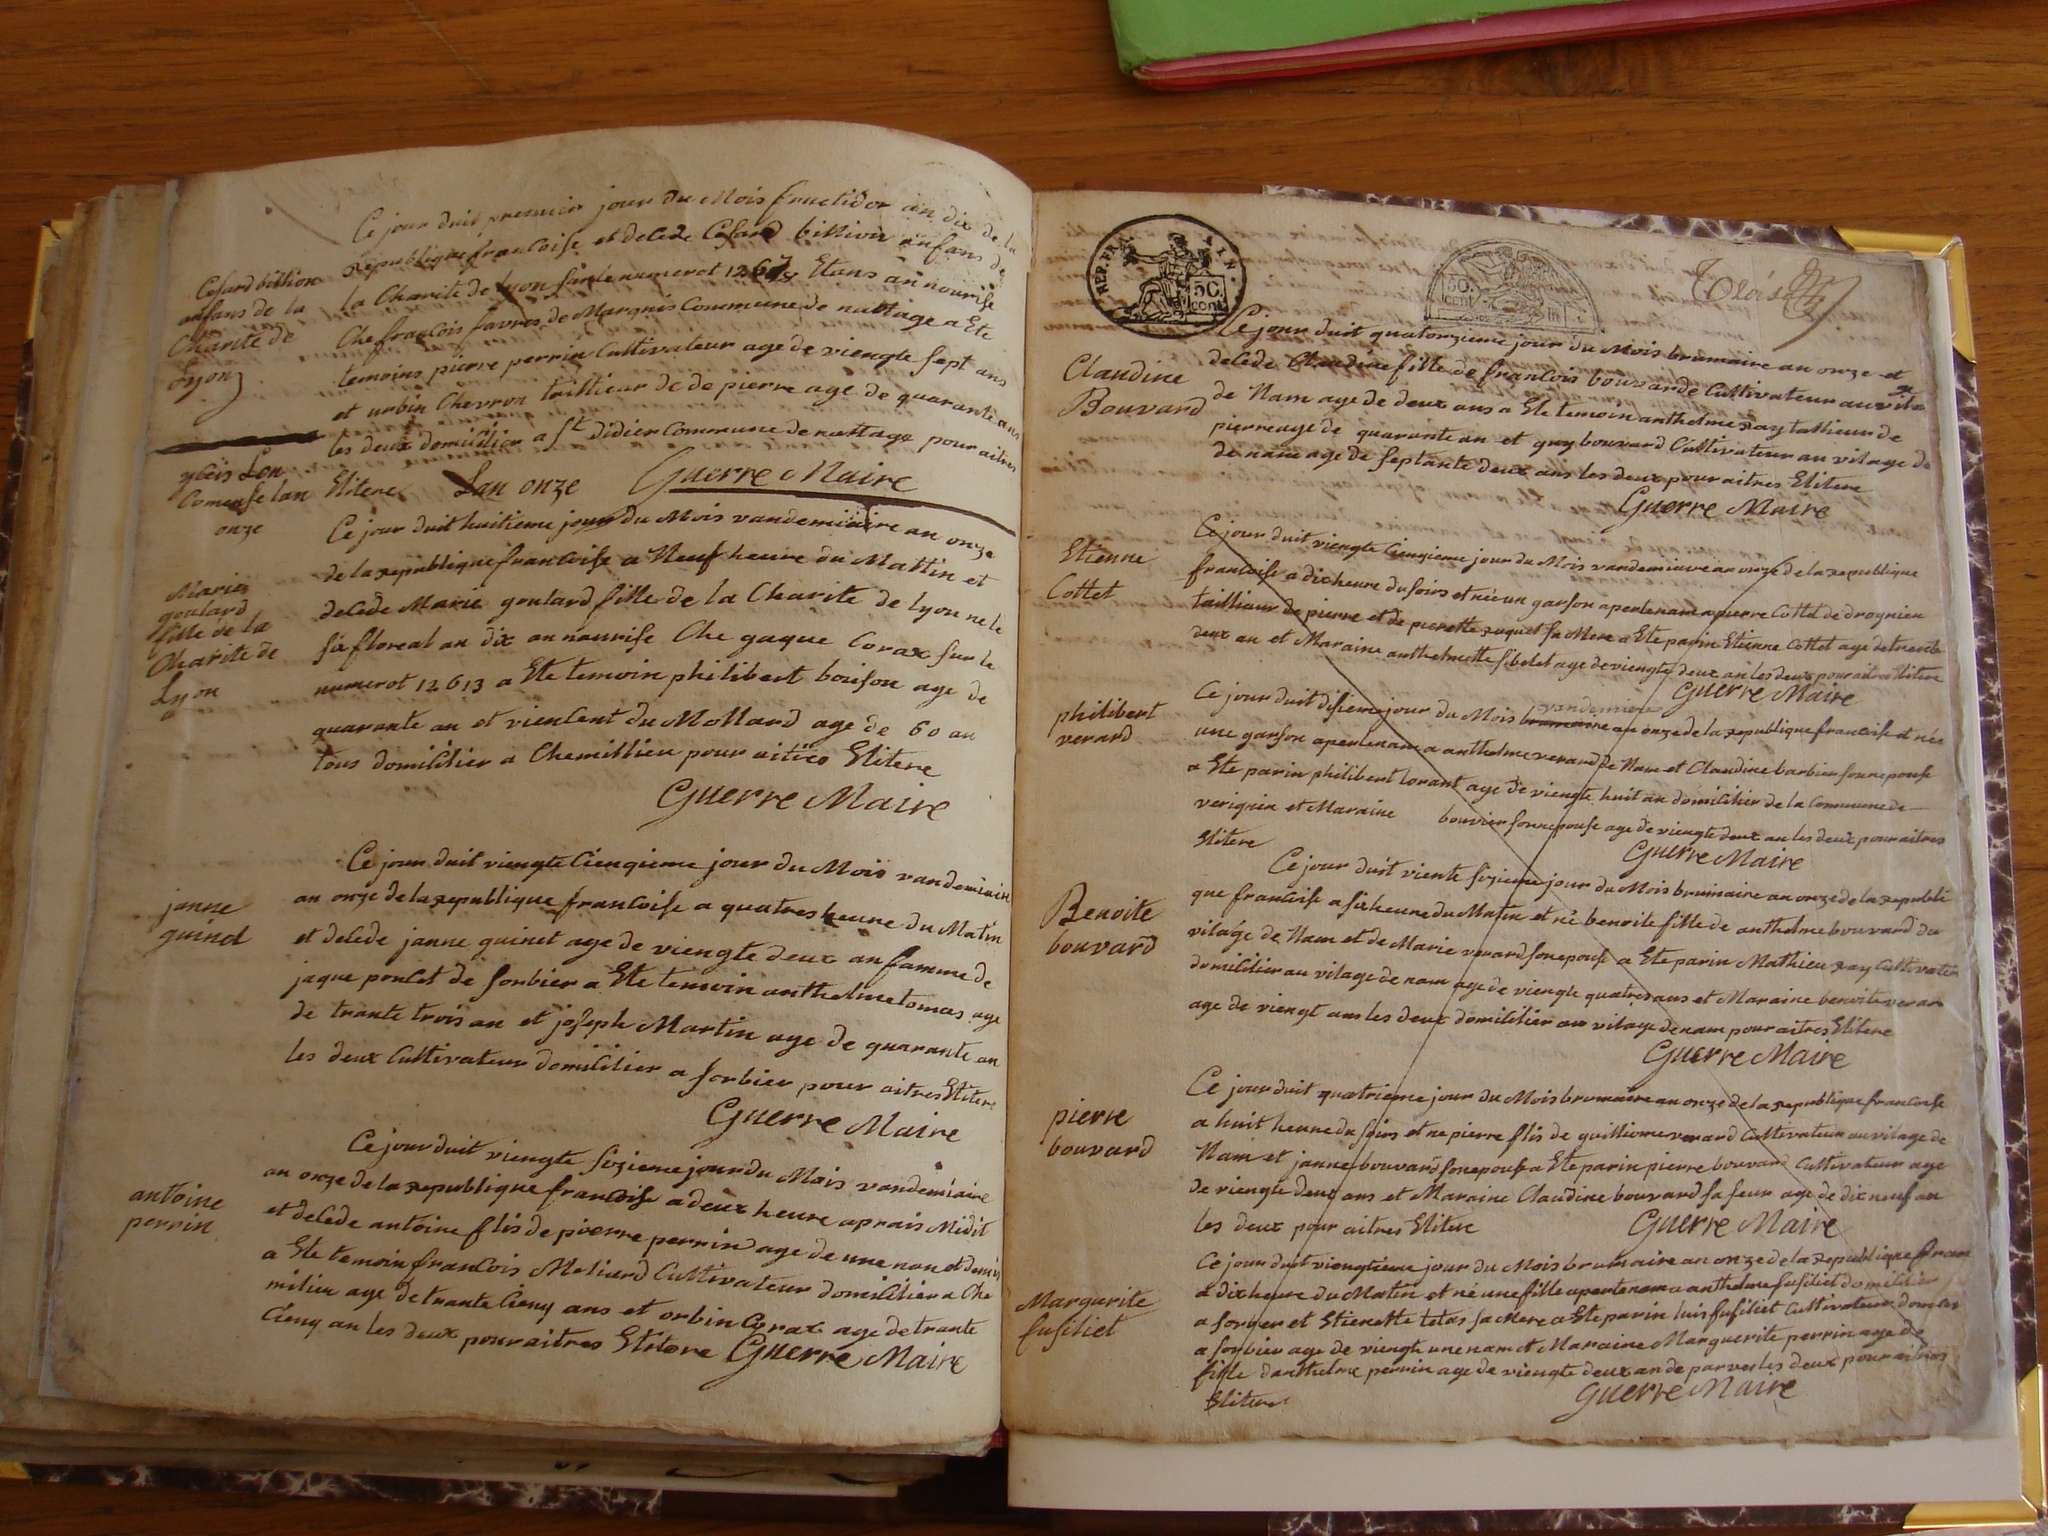 Ce jour duit premier jour du Mois fructidor an dix de la
Cesard billion
anfans de la
Charite de
Lyon
republique francoise et decede Cesard billion anfans de
la Charite de Lyon sur le numerot Etans an nourise
Che francois favres de Marnis Commune de nattage a Ete
temoins pierre perrin Cultivateur age de viengte sept ans
et urbin Chevron taillieur de de pierre age de quarante ans
les deux domicilier a St didier Commune de nattage pour aitres
Elitere Lan onze Guerre Maire
yceis Len
Comense lan
onze
Ce jour duit huitieme jour du Mois vandemiaire an onze
de la republique francoise a Neuf heure du Mattin et
Marie
goulard
fille de la
Charite de
Lyon
decede Marie goulard fille de la Charite de Lyon ne le
six floreal an dix an nourise Che gaque Corax sur le
numerot 12613 a Ete temoin philibert boison age de
quarante an et vienCent du Mollard age de 60 an
tous domicilier a Chemillieu pour aitres Elitere
Guerre Maire
Ce jour duit viengte Ciengieme jour du Mois vandemiaire
janne
guinet
an onze de la republique francoise a quatres heure du Matin
et decede janne guinet age de viengte deux an famme de
jaque poncet de sorbier a Ete temoin anthelme tomas age
de trante trois an et joseph Martin age de quarante an
les deux Cultivateur domicilier a sorbier pour aitres Elitere
Guerre Maire
Ce jour duit viengte sizieme jour du Mois vandemiaire
antoine
perrin
an onze de la republique francoise a deux heure aprais Midit
et decede antoine flis de pierre perrin age de une nan et demis
a Ete temoin francois Moliard Cultivateur domicilier a Che
milieu age de trante Cieng ans et orbin Corax age de trante
Cieng an les deux pour aitres Elitere Guerre Maire
REP. FRA.
50
cent
50.
cent
Ce jour duit quatorzieme jour du Mois brumaire an onze et
Claudine
Bouvard
decede Claudine fille de francois bouvarde Cultivateur au vilage
de Nam age de deux ans a Ete temoin anthelme ray tallieur de
pierre age de quarante an et guy bouvard Cultivateur au vilage de
de nam age de septante deux ans les deux pour aitres Elitere
Guerre Maire
Etienne
Cottet
Ce jour duit viengte Ciengieme jour du Mois vandemiaire an onze de la republique
francoise a dix heure du soirs et née un garson apertenant a pierre Cottet de drognien
taillieur de pierre et de pierrette roquet sa Mere a Ete parin Etienne Cottet age de trente
deux an et Maraine anthelmette sibelet age de viengte deux an les deux pour aitres Elitere
Guerre Maire
philibert
verard
vandemiere
Ce jour duit disieme jour du Mois brumaire an onze de la republique francoise et née
une garson apertenam a anthelme verard de Nam et Claudine barbier sonnepouse
a Ete parin philibert lorant age de viengte huit an domicilier de la Commune de
verignin et Maraine bouvier sonnepouse age de viengte deux an les deux pour aitres
Elitere
Guerre Maire
Benoite
bouvard
Ce jour duit viente sizieme jour du Mois brumaire an onze de la republi
que francoise a six heure du Matin et né benoite fille de anthelme bouvard du
vilage de Nam et de Marie verard sonepouse a Ete parin Mathieu ray Cultivateur
domicilier au vilage de nam age de viengte quatres ans et Maraine benoite verar
age de viengt ans les deux domicilier au vilage de nam pour aitres Elitere
Guerre Maire
pierre
bouvard
Ce jour duit quatrieme jour du Mois brumaire an onze de la republique francoise
a huit heure du soirs et ne pierre flis de guilliome verard Cultivateur au vilage de
Nam et janne bouvard sonepouse a Ete parin pierre bouvard Cultivateur age
de viengte deux ans et Maraine Claudine bouvard sa seur age de dix neuf an
les deux pour aitres Elitere
Guerre Maire
Margurite
fusiliet
Ce jour duit viengtieme jour du Mois brumaire an onze de la republique fran
a dix heure du Matin et né une fille apertenam a anthelme fusiliet domicilier
a soryer et Etienette tetas sa Mere a Ete parin luis fusiliet Cultivateur domici
a sorbier age de viengte une nam et Maraine Marguerite perrin age de
fille danthelme perrin age de viengte deux an de parves les deux pour aitres
Elitere
Guerre Maire